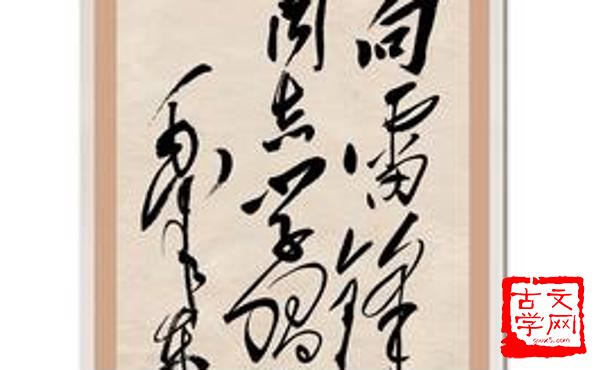 向雷锋
同志学习
毛泽东
古文学网
gwx5.com